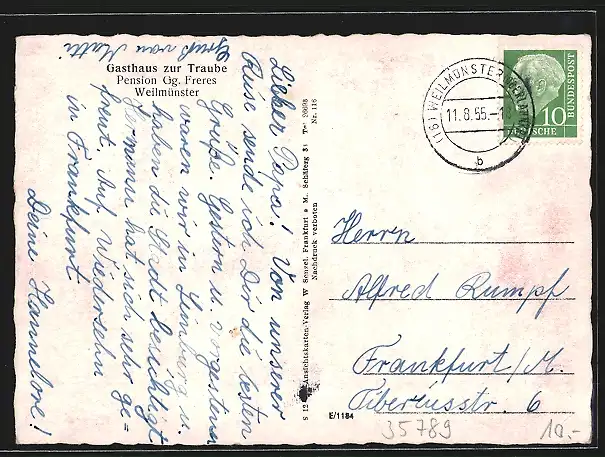 Gasthaus zur Traube
Pension Gg. Freres
Weilmünster
Lieber Papa! Von unserer
sende ich Dir die besten
Grüße. Gestern u. vorgestern
waren wir in Limburg u.
haben die Stadt besichtigt
hat sich sehr ge-
freut. Auf Wiedersehn
in Frankfurt
Deine Hannelore!
Gruß von Mutti
S 12 Ansichtskarten-Verlag W Senzel, Frankfurt a M., Schäferg 31 Tel 20093
Nachdruck verboten Nr. 116
E/1184
(16) WEILMÜNSTER
11.8.55.
b
10
DEUTSCHE BUNDESPOST
Herrn
Alfred Rumpf
Frankfurt/M.
Tiberiusstr. 6
35789
10.-